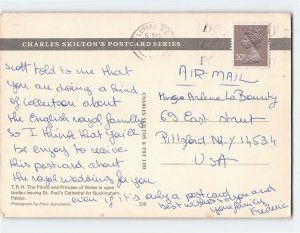 LONDON
CHARLES SKILTON'S POSTCARD SERIES
20P
Scott told to me that
you are doing a kind
of collection about
the english royal family
So I think that you'll
be enjoy to receive
this postcard about
the royal wedding for you
T.R.H. The Prince and Princess of Wales in open
landau leaving St. Paul's Cathedral for Buckingham
Palace.
Photograph by Press Association
518
CHARLES SKILTON & FRY LTD
AIR MAIL
Arlene La Bounty
69 East Street
Pittsford N.Y 14534
USA
even if it's only a postcard
best wishes to you and
your families
Frederic